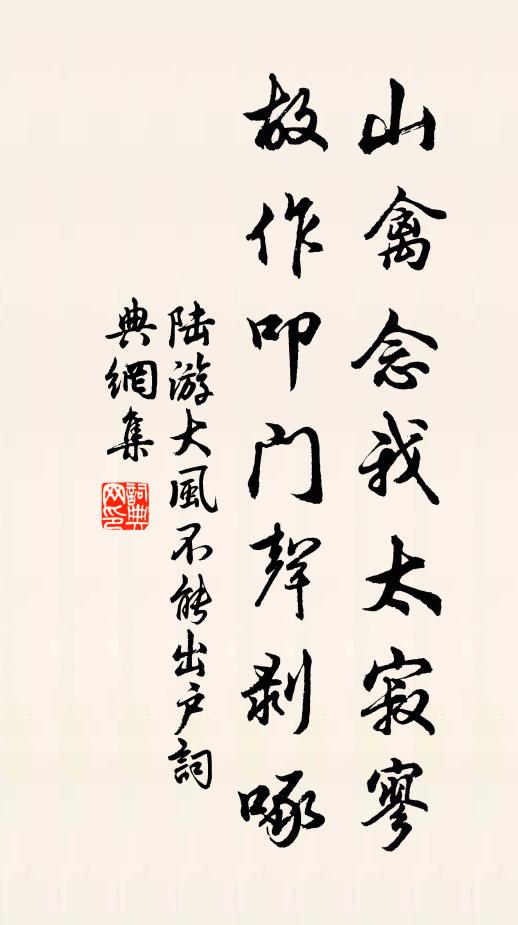 山禽念我太寂寥
故作叩門聲剥啄
陆游大風不能出户詞
典網集
詞典网印